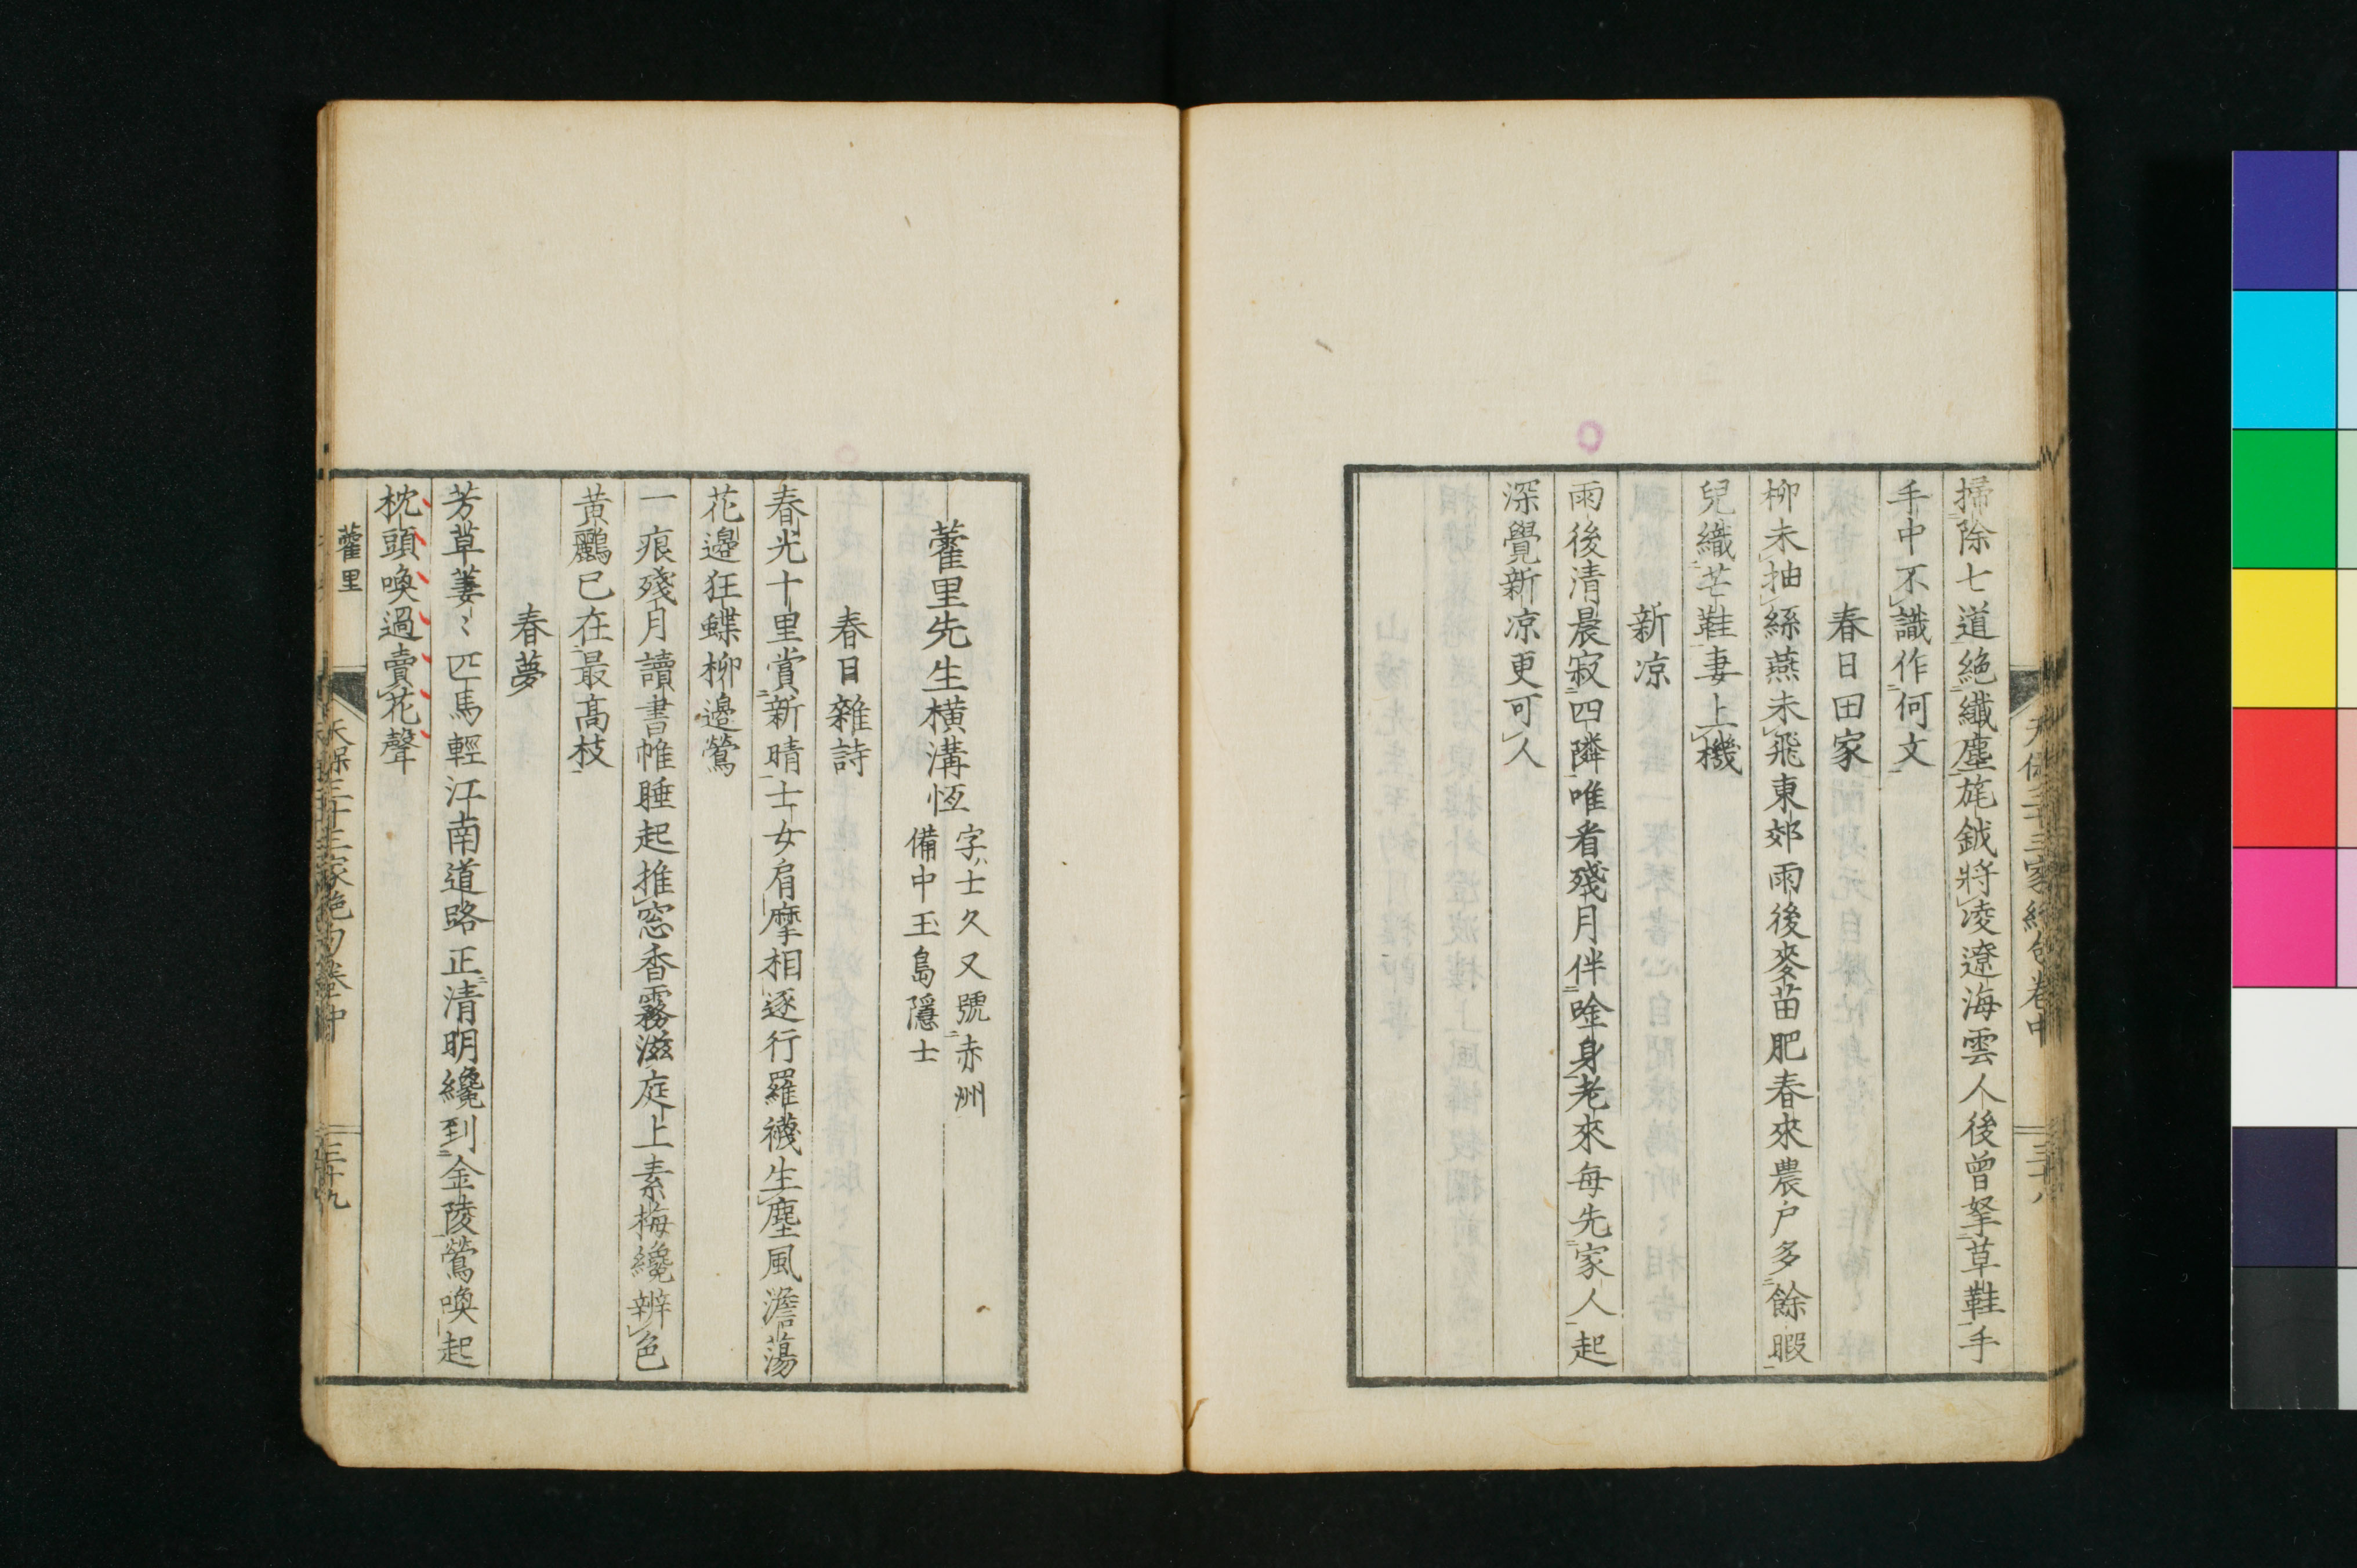 掃除七道絶纖塵旄鉞將凌遼海雲人後曾拏草鞋手
手中不識作何文
春日田家
柳未抽絲燕未飛東郊雨後麥苗肥春來農戸多餘暇
兒織芒鞋妻上機
新凉
雨後清晨寂四隣唯看殘月伴唫身老來每先家人起
深覺新凉更可人
藿里先生橫溝恆
字士久又號赤洲
備中玉島隱士
春日雜詩
春光十里賞新晴士女肩摩相逐行羅襪生塵風澹蕩
花邊狂蝶柳邊鶯
一痕殘月讀書帷睡起推窓香霧滋庭上素梅纔辨色
黃鸝已在最高枝
春夢
芳草萋〻匹馬輕江南道路正清明纔到金陵鶯喚起
枕頭喚過賣花聲
藿里
天保三十三家絶句卷中
三十九